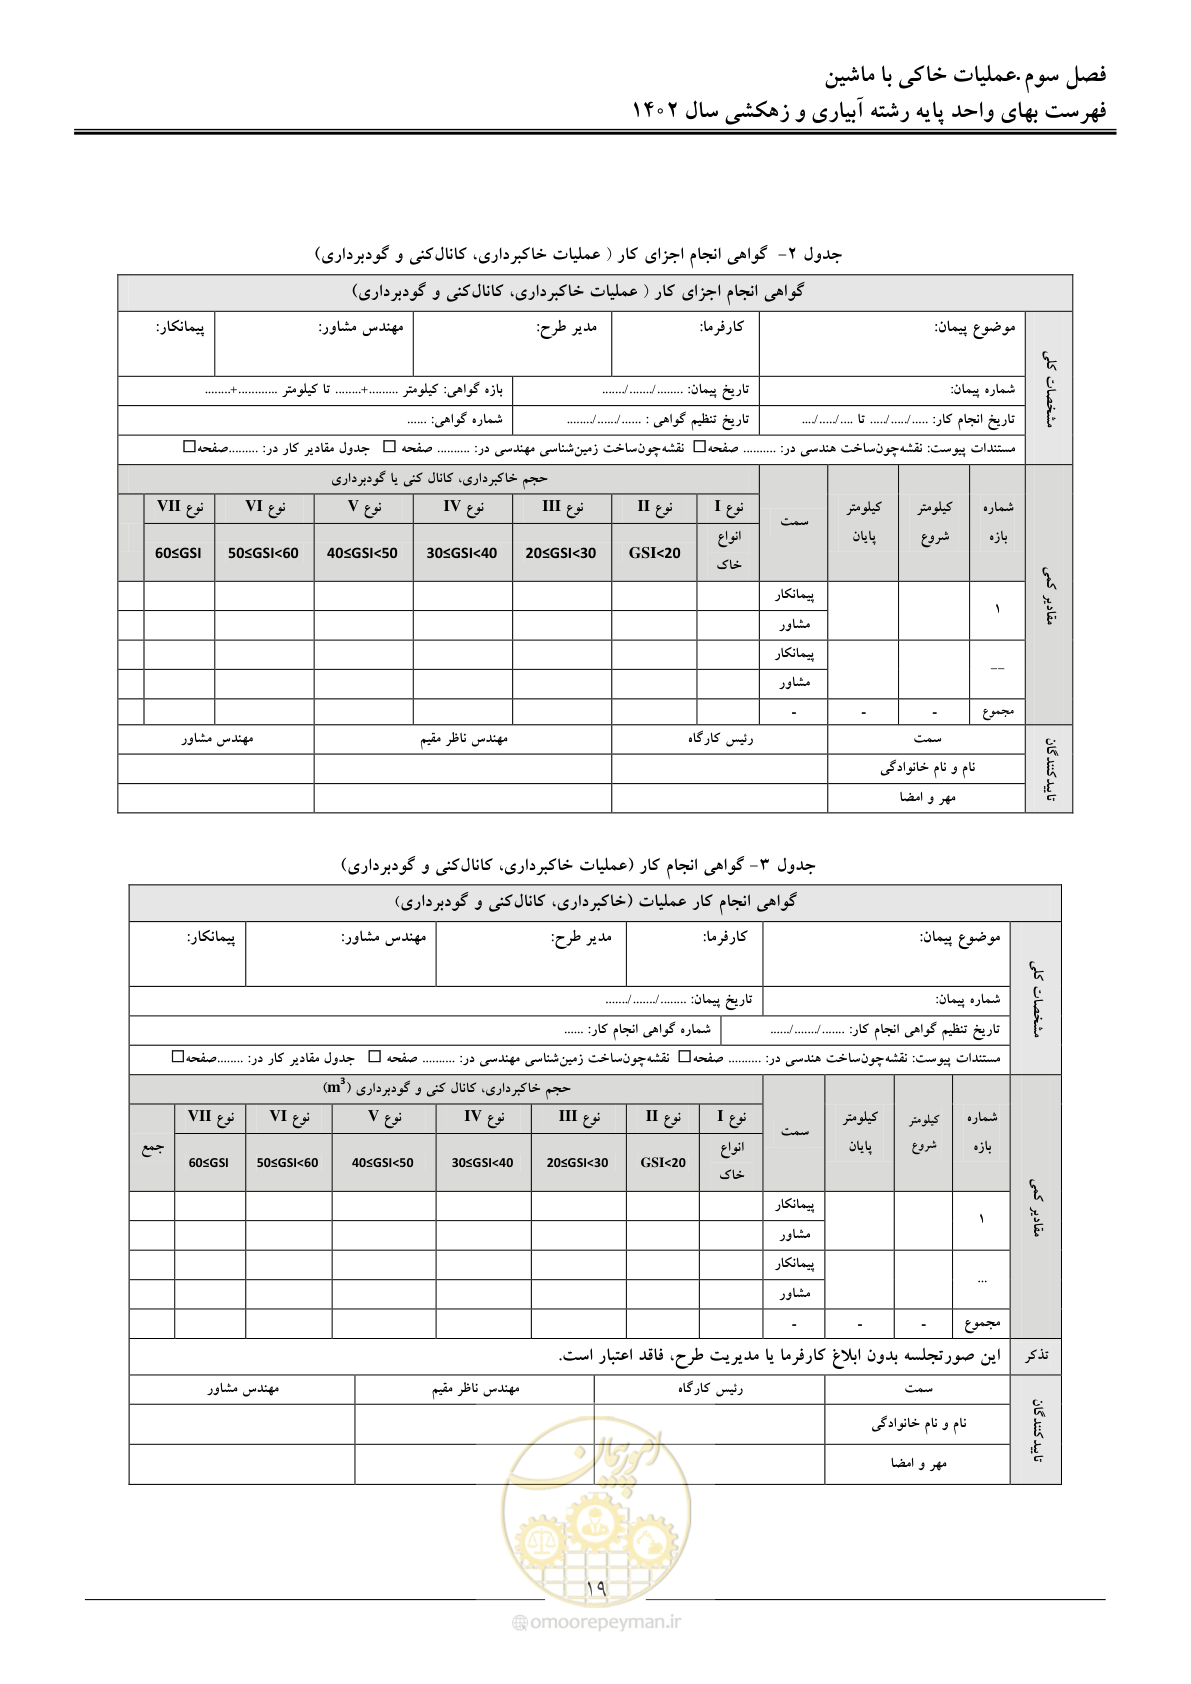 فصل سوم.عملیات خاکی با ماشین
فهرست بهای واحد پایه رشته آبیاری و زهکشی سال ۱۴۰۲
جدول ۲- گواهی انجام اجزای کار ( عملیات خاکبرداری، کانال‌کنی و گودبرداری)
گواهی انجام اجزای کار ( عملیات خاکبرداری، کانال‌کنی و گودبرداری)
مشخصات کلی
موضوع پیمان: کارفرما: مدیر طرح: مهندس مشاور: پیمانکار:
شماره پیمان: تاریخ پیمان: ......../......./....... بازه گواهی: کیلومتر .........+........ تا کیلومتر ............+........
تاریخ انجام کار: ...../...../..... تا ..../...../.... تاریخ تنظیم گواهی : ....../....../........ شماره گواهی: ......
مستندات پیوست: نقشه‌چون‌ساخت هندسی در: .......... صفحه☐ نقشه‌چون‌ساخت زمین‌شناسی مهندسی در: .......... صفحه ☐ جدول مقادیر کار در: .........صفحه☐
مقادیر کمی
شماره بازه کیلومتر شروع کیلومتر پایان سمت حجم خاکبرداری، کانال کنی یا گودبرداری
نوع I نوع II نوع III نوع IV نوع V نوع VI نوع VII
انواع خاک GSI<20 20≤GSI<30 30≤GSI<40 40≤GSI<50 50≤GSI<60 60≤GSI
۱ پیمانکار
مشاور
__ پیمانکار
مشاور
مجموع - - -
تاییدکنندگان
سمت رئیس کارگاه مهندس ناظر مقیم مهندس مشاور
نام و نام خانوادگی
مهر و امضا
جدول ۳- گواهی انجام کار (عملیات خاکبرداری، کانال‌کنی و گودبرداری)
گواهی انجام کار عملیات (خاکبرداری، کانال‌کنی و گودبرداری)
مشخصات کلی
موضوع پیمان: کارفرما: مدیر طرح: مهندس مشاور: پیمانکار:
شماره پیمان: تاریخ پیمان: ......../......./.......
تاریخ تنظیم گواهی انجام کار: ......./......./...... شماره گواهی انجام کار: ......
مستندات پیوست: نقشه‌چون‌ساخت هندسی در: .......... صفحه☐ نقشه‌چون‌ساخت زمین‌شناسی مهندسی در: .......... صفحه ☐ جدول مقادیر کار در: ........صفحه☐
مقادیر کمی
شماره بازه کیلومتر شروع کیلومتر پایان سمت حجم خاکبرداری، کانال کنی و گودبرداری (m³)
نوع I نوع II نوع III نوع IV نوع V نوع VI نوع VII جمع
انواع خاک GSI<20 20≤GSI<30 30≤GSI<40 40≤GSI<50 50≤GSI<60 60≤GSI
۱ پیمانکار
مشاور
... پیمانکار
مشاور
مجموع - - -
تذکر این صورتجلسه بدون ابلاغ کارفرما یا مدیریت طرح، فاقد اعتبار است.
تاییدکنندگان
سمت رئیس کارگاه مهندس ناظر مقیم مهندس مشاور
نام و نام خانوادگی
مهر و امضا
امور پیمان
۱۹
omoorepeyman.ir